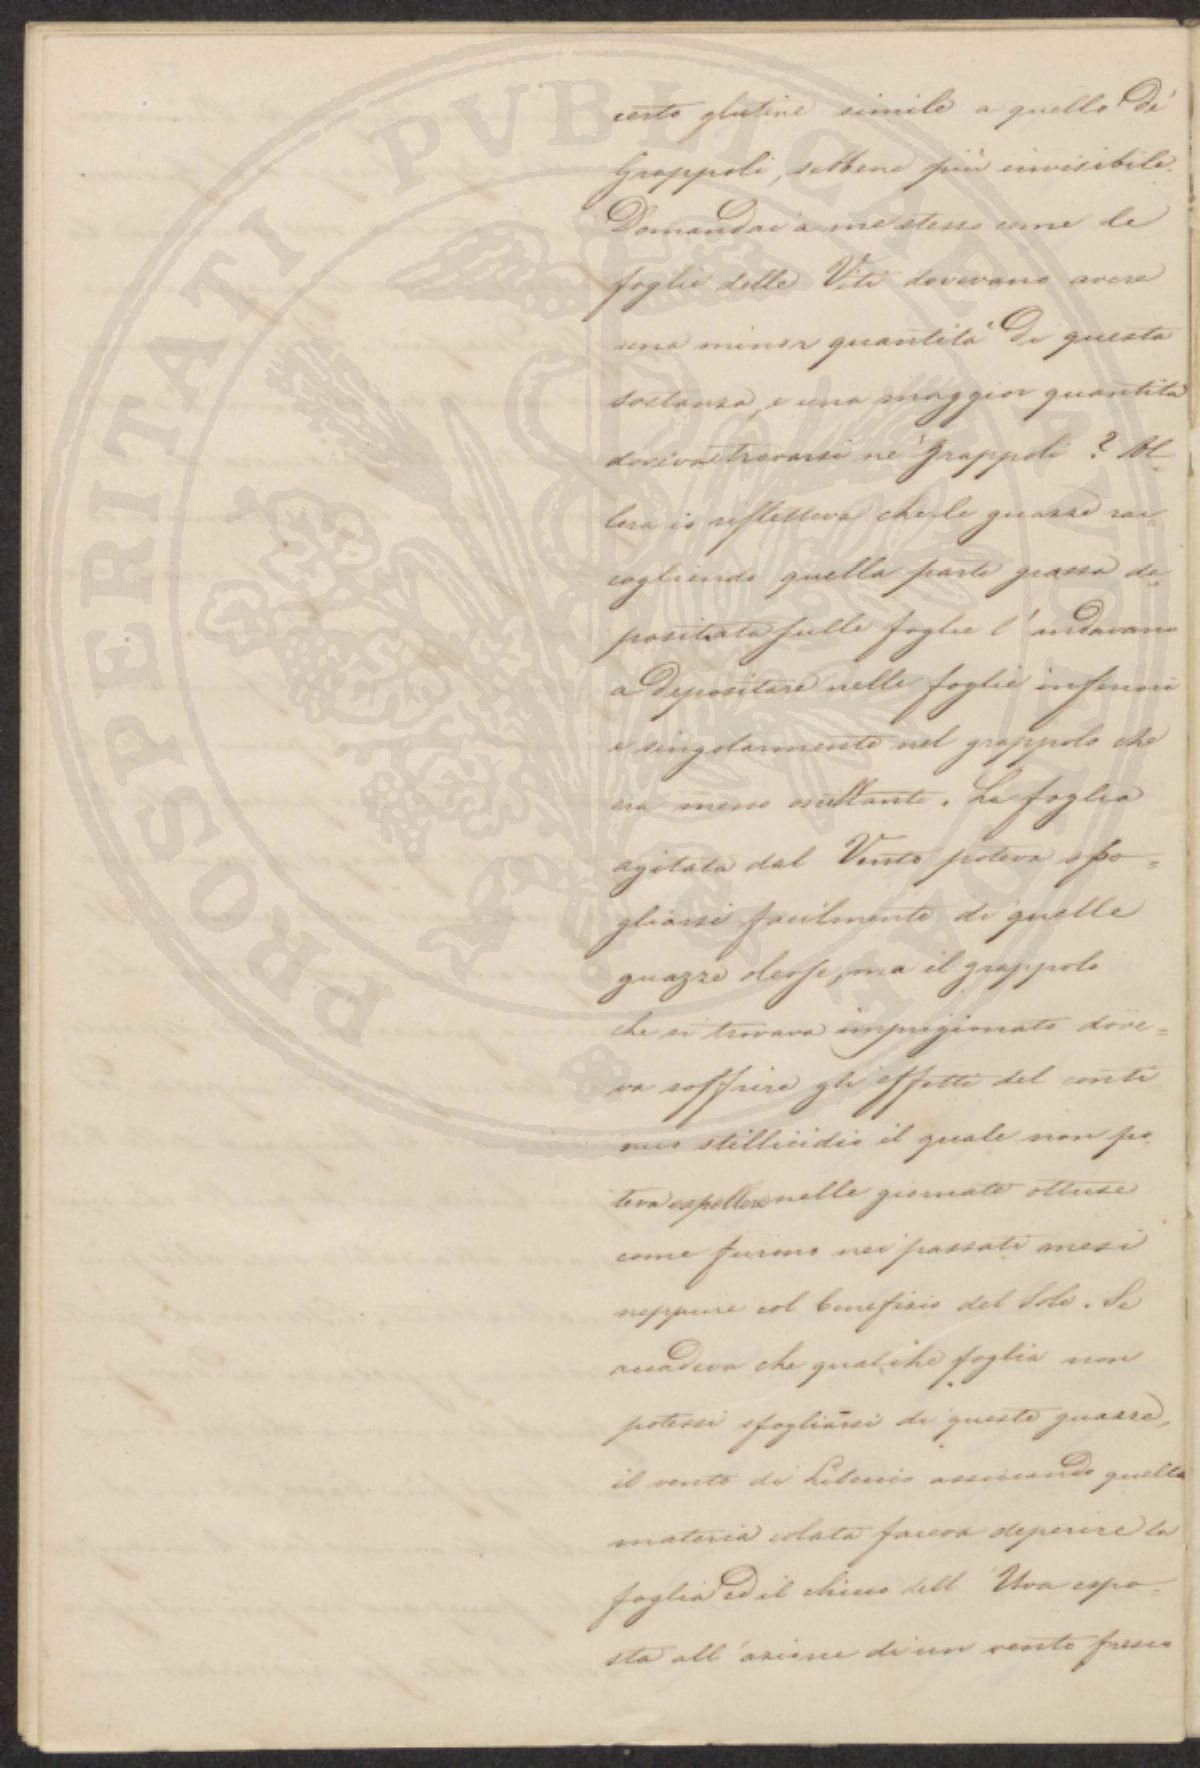 certo glutine simile a quello de'
Grappoli, sebbene più invisibile.
Domandai a me stesso come le
foglie delle Viti dovevano avere
una minor quantità di questa
sostanza, e una maggior quantità
doveva trovarsi ne' grappoli? Al=
lora io rifletteva che le guazze rac=
cogliendo quella parte grassa de=
positata sulle foglie l'andavano
a depositare nelle foglie inferiori
e singolarmente nel grappolo che
era meno oscillante. La foglia
agitata dal Vento poteva spo=
gliarsi facilmente di quelle
guazze oleose, ma il grappolo
che si trovava imprigionato dove=
va soffrire gli effetti del conti=
nuo stillicidio il quale non po=
teva espellere nelle giornate ottuse
come furono nei passati mesi
neppure col benefizio del Sole. Se
accadeva che qualche foglia non
potessi sfogliarsi di queste guazze,
il vento di Libeccio asciugando quella
materia colata faceva deperire la
foglia ed il chicco dell'Uva espo=
sta all'azione di un vento fresco
PROSPERITATI PVBLICAE AVGENDAE